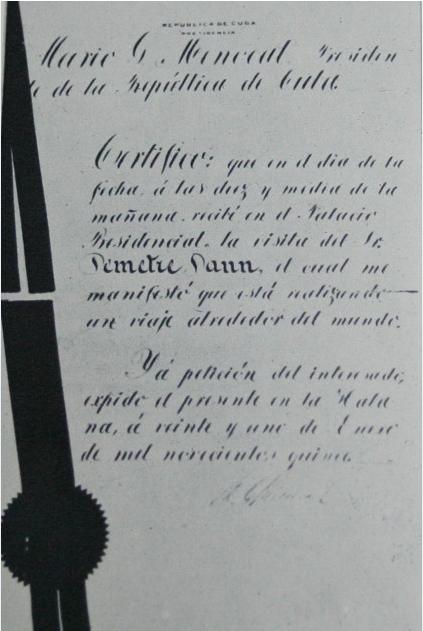 REPÚBLICA DE CUBA
PRESIDENCIA
Mario G. Menocal Presiden
te de la República de Cuba.
Certifico: que en el dia de la
fecha, á las diez y media de la
mañana, recibí en el Palacio
Presidencial, la visita del Sr.
Demetre Dann, el cual me
manifestó que está realizando
un viaje alrededor del mundo.
Yá petición del interesado,
expido el presente en la Haba
na, á veinte y uno de Enero
de mil novecientos quince.